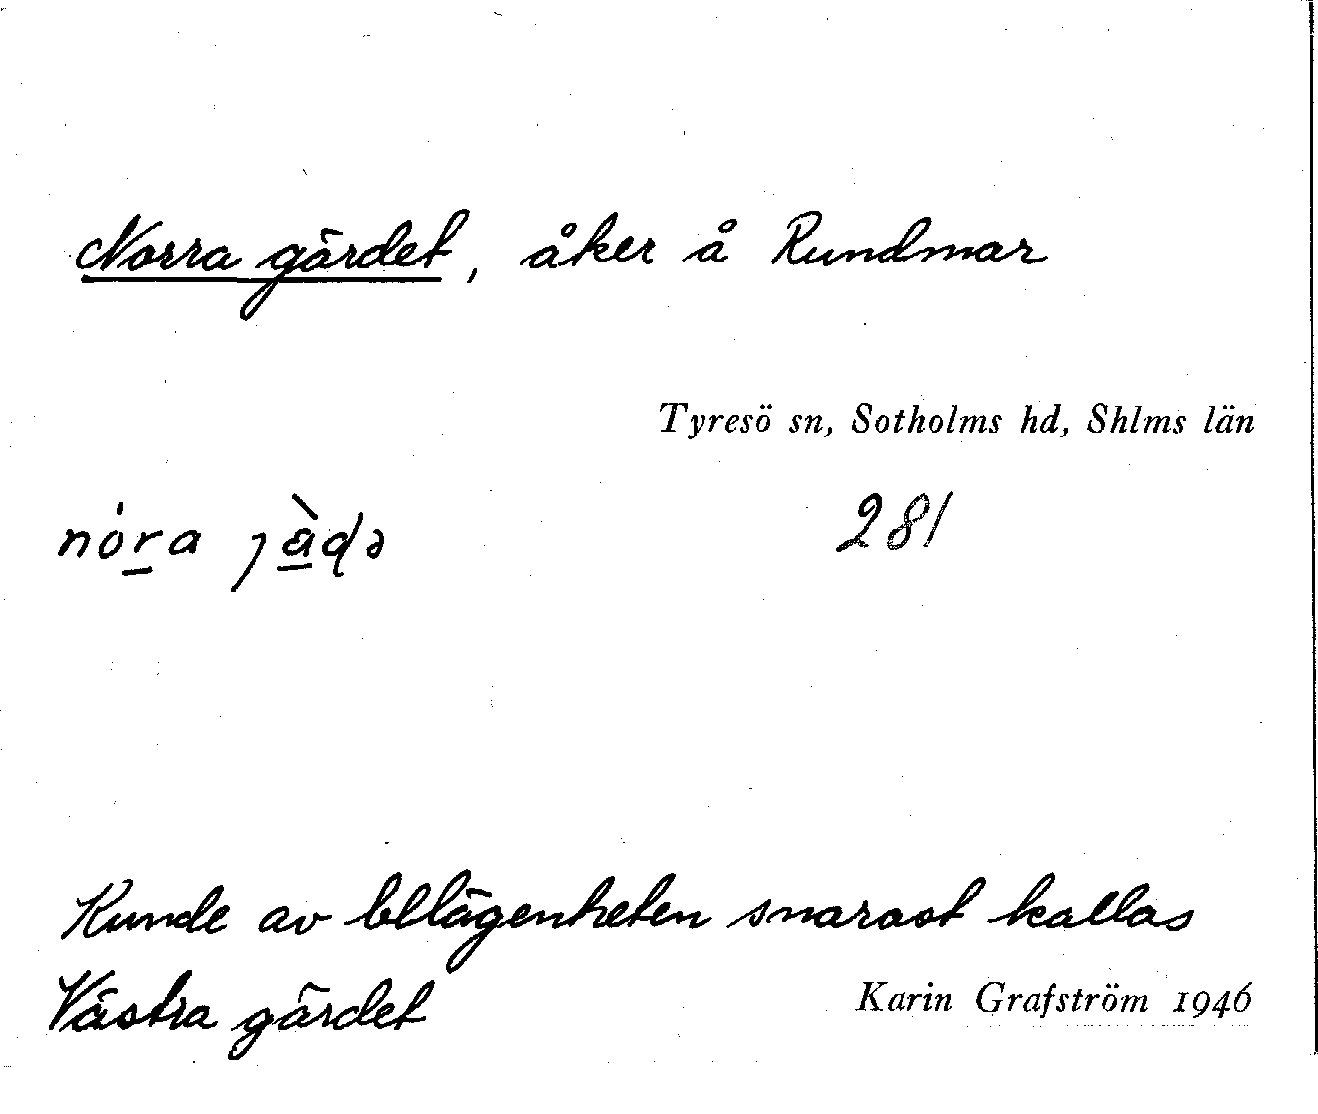 Norra gärdet, åker å Rundmar
Tyresö sn, Sotholms hd, Shlms län
281
Kunde av belägenheten snarast kallas
Västra gärdet
Karin Grafström 1946